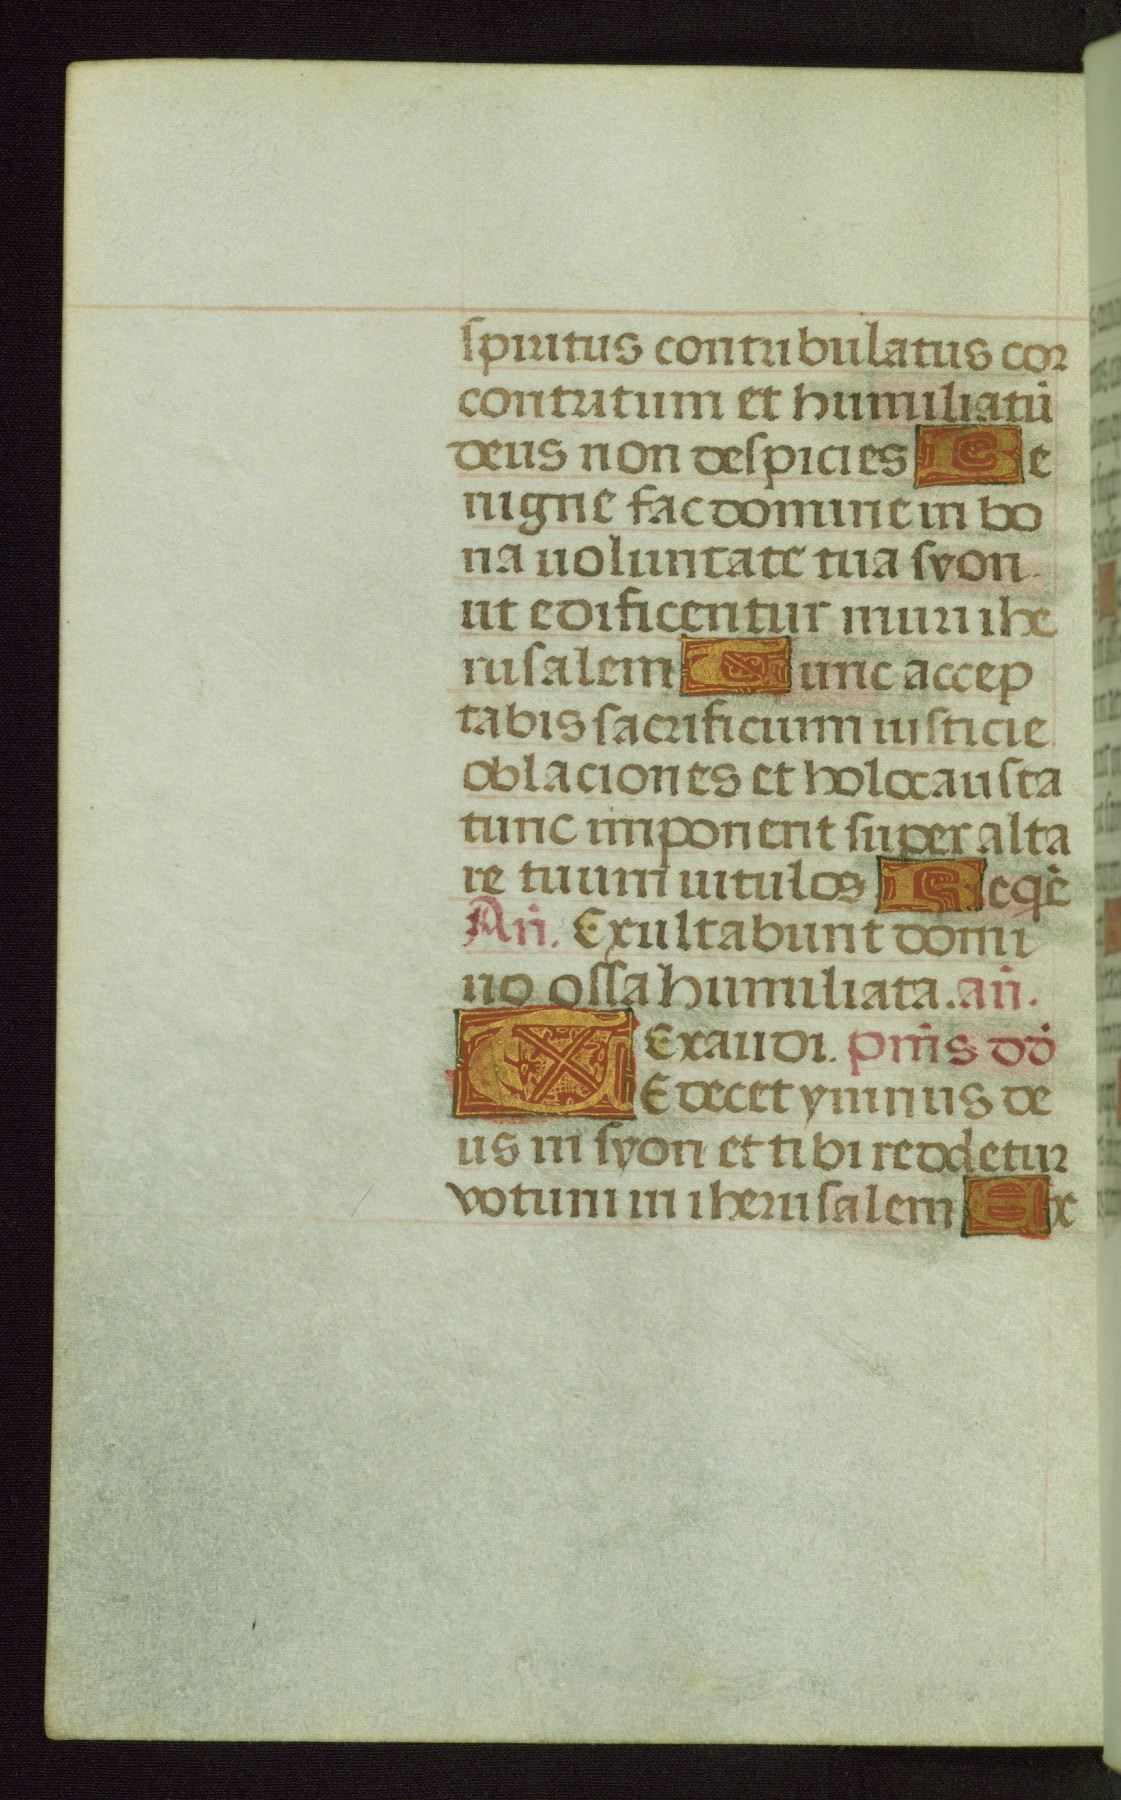 spiritus contribulatus cor
contritum et humiliatū
deus non despicies Be
nigne fac domine in bo
na uoluntate tua syon
ut edificentur muri ihe
rusalem Tunc accep
tabis sacrificium iusticie
oblaciones et holocausta
tunc imponent super alta
re tuum uitulos Reqē
An̄. Exultabunt domi
no ossa humiliata. an̄.
Exaudi. p̄m̄s dd̄
TE decet ymnus de
us in syon et tibi reddetur
votum in iherusalem Ex